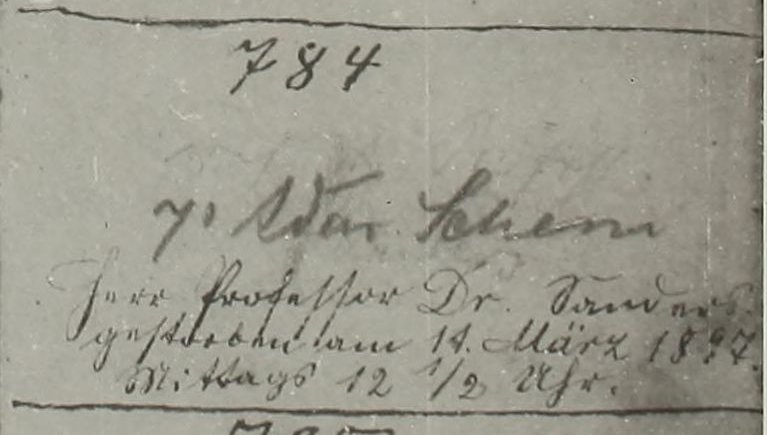 784
7. Adar Scheni
Herr Professor Dr. Sanders.
gestorben am 11. März 1897.
Mittags 12 1/2 Uhr.